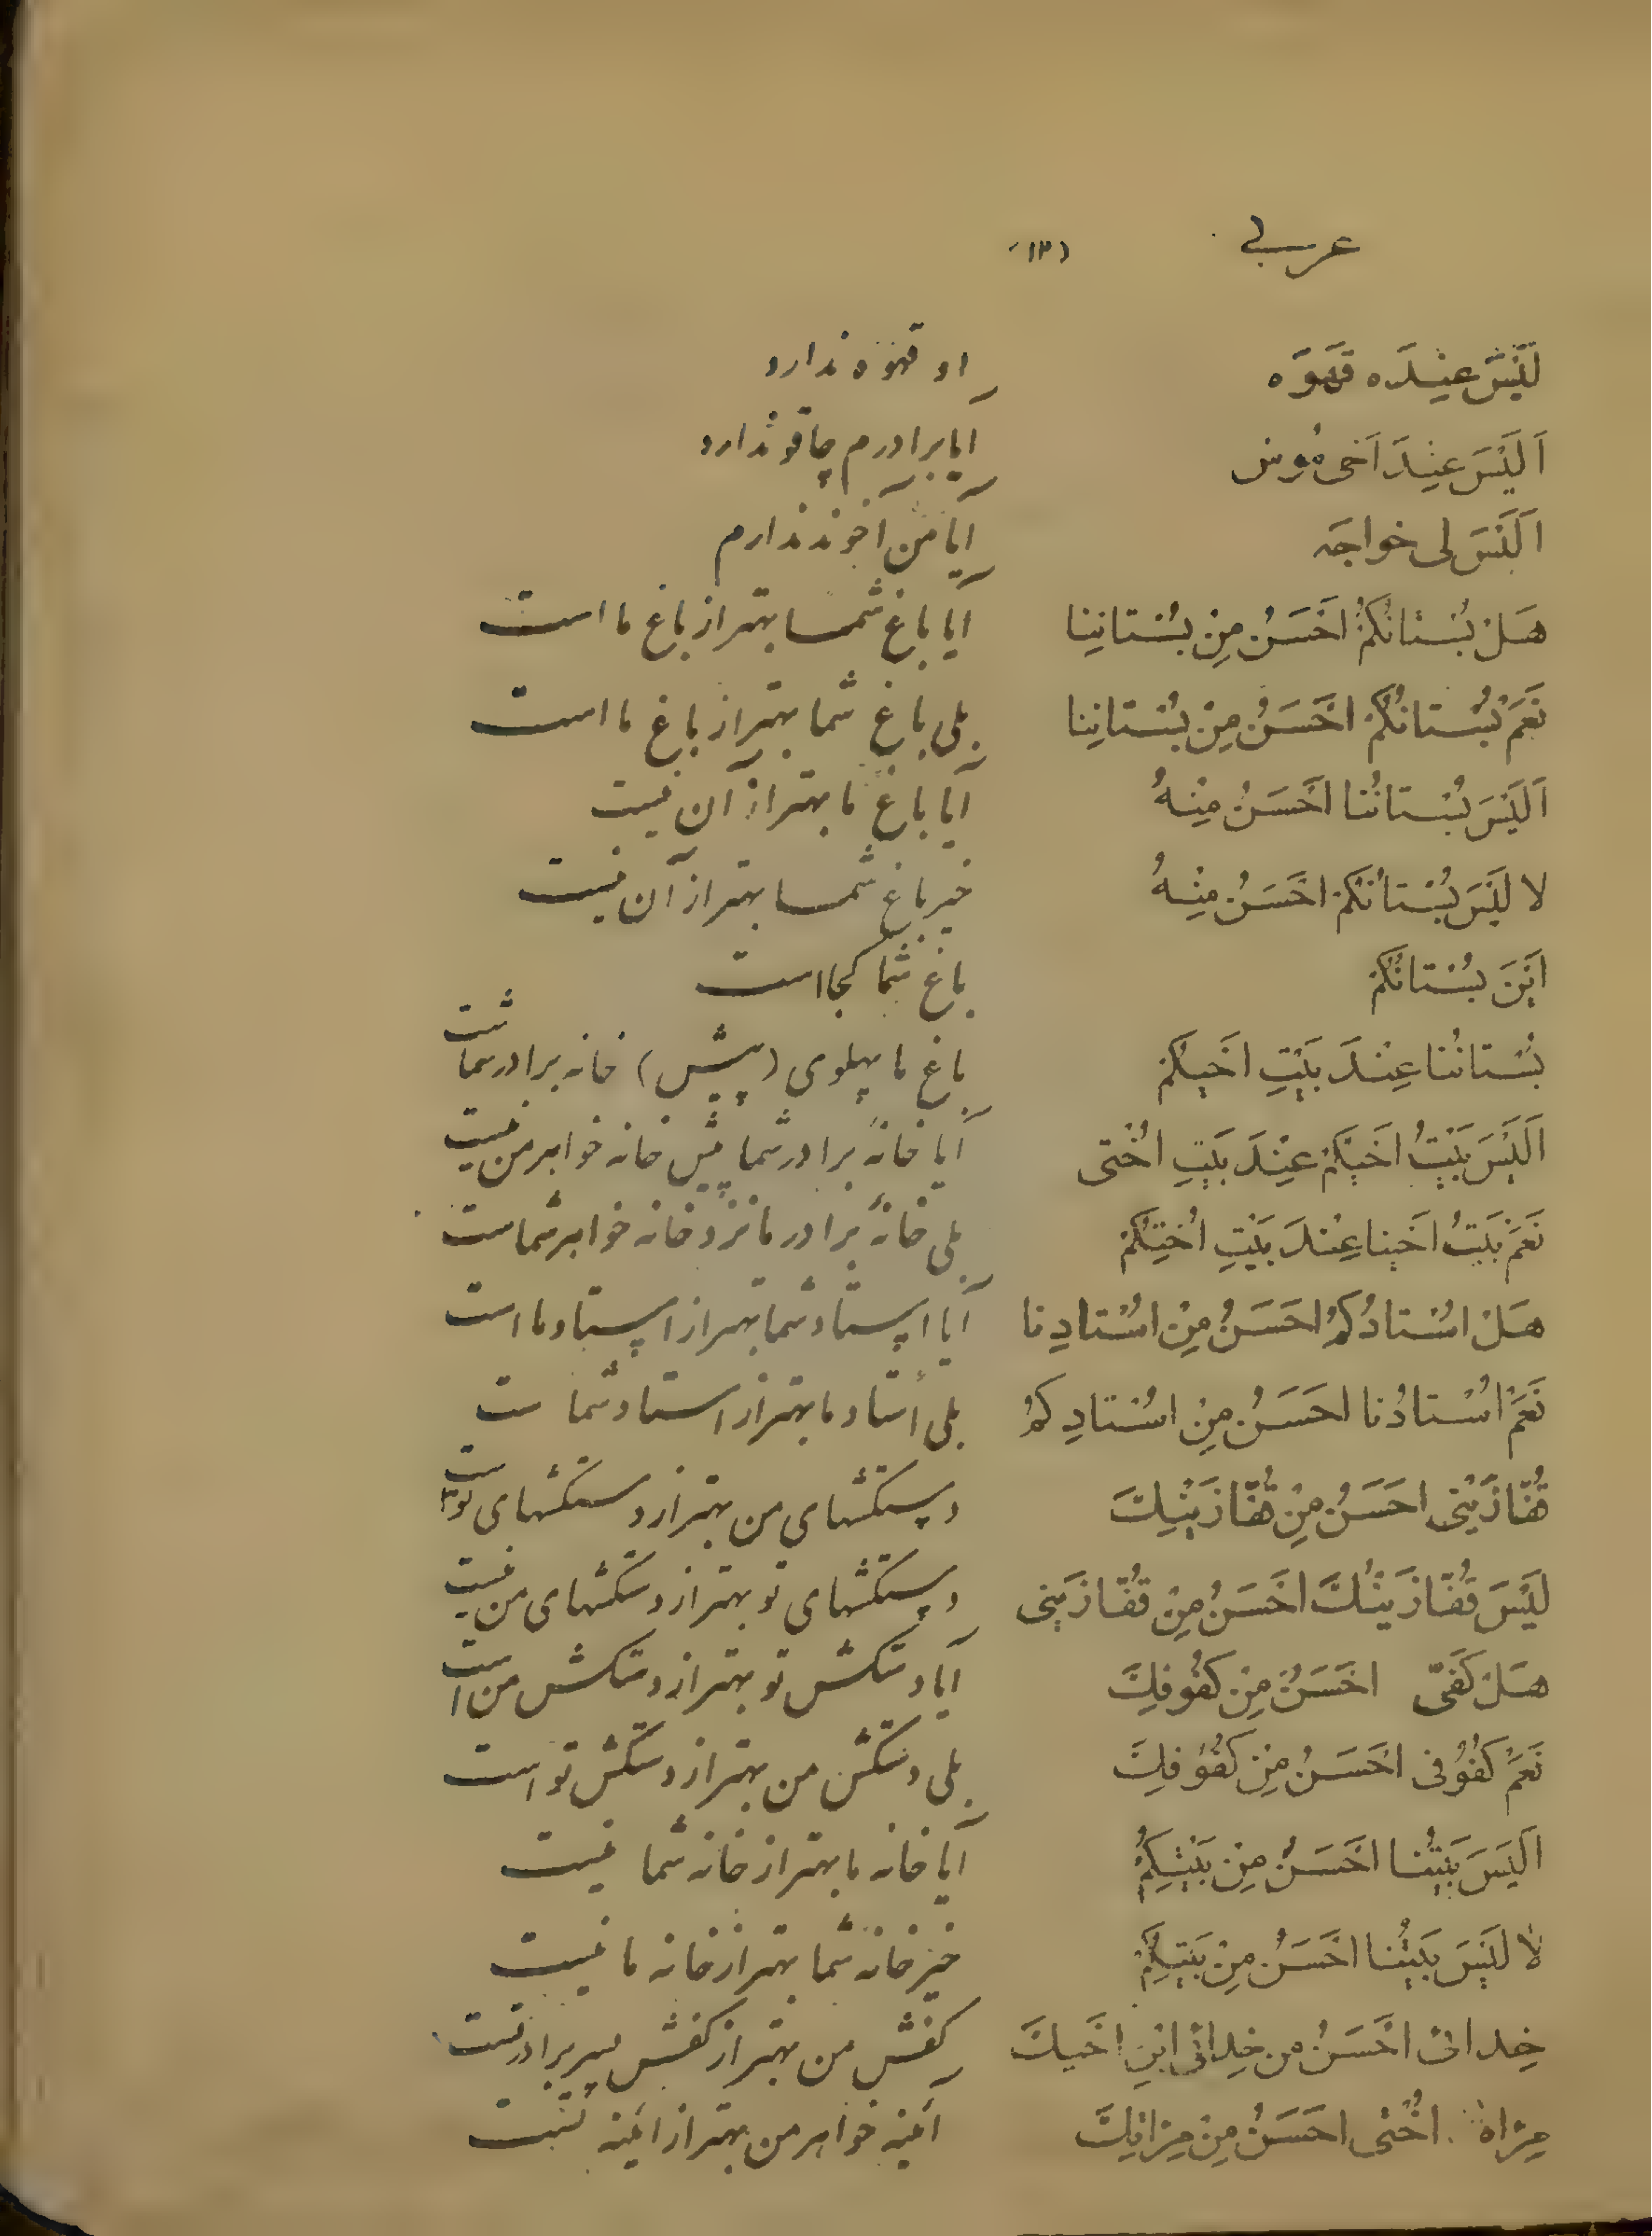 عربی (۱۳)
لَیْسَ عِنْدَه قَهْوَه او قهوه ندارد
اَلَیْسَ عِنْدَ اَخی مُوس آیا برادرم چاقو ندارد
اَلَیْسَ لی خواجَه آیا من آخوند ندارم
هَلْ بُسْتانُکُمْ اَحْسَنُ مِنْ بُسْتانِنا آیا باغ شما بهتر از باغ ما است
نَعَمْ بُسْتانُکُمْ اَحْسَنُ مِنْ بُسْتانِنا بلی باغ شما بهتر از باغ ما است
اَلَیْسَ بُسْتانُنا اَحْسَنُ مِنْهُ آیا باغ ما بهتر از آن نیست
لا لَیْسَ بُسْتانُکُمْ اَحْسَنُ مِنْهُ خیر باغ شما بهتر از آن نیست
اَیْنَ بُسْتانُکُمْ باغ شما کجا است
بُسْتانُنا عِنْدَ بَیْتِ اَخیکُمْ باغ ما پهلوی (پیش) خانه برادر شماست
اَلَیْسَ بَیْتُ اَخیکُمْ عِنْدَ بَیْتِ اُخْتی آیا خانهٔ برادر شما پیش خانه خواهر من نیست
نَعَمْ بَیْتُ اَخینا عِنْدَ بَیْتِ اُخْتِکُمْ بلی خانهٔ برادر ما نزد خانه خواهر شماست
هَلْ اُسْتادُکُمْ اَحْسَنُ مِنْ اُسْتادِنا آیا استاد شما بهتر از استاد ما است
نَعَمْ اُسْتادُنا اَحْسَنُ مِنْ اُسْتادِکُمْ بلی اُستاد ما بهتر از استاد شما ست
قُفّازَیْنی اَحْسَنُ مِنْ قُفّازَیْنِكَ دستکشهای من بهتر از دستکشهای تو است
لَیْسَ قُفّازَیْنُكَ اَحْسَنُ مِنْ قُفّازَیْنی دستکشهای تو بهتر از دستکشهای من نیست
هَلْ کَفّی اَحْسَنُ مِنْ کَفُوفِكَ آیا دستکش تو بهتر از دستکش من است
نَعَمْ کُفُوفی اَحْسَنُ مِنْ کُفُوفِكَ بلی دستکش من بهتر از دستکش تو است
اَلَیْسَ بَیْتُنا اَحْسَنُ مِنْ بَیْتِکُمْ آیا خانه ما بهتر از خانه شما نیست
لا لَیْسَ بَیْتُنا اَحْسَنُ مِنْ بَیْتِکُمْ خیر خانه شما بهتر از خانه ما نیست
اَحْسَنُ مِن اِبْنِ اَخیكَ کفش من بهتر از کفش پسر برادرتست
مِرْاةُ اُخْتی اَحْسَنُ مِنْ مِرْاتِكَ آئینه خواهر من بهتر از آئینه تست